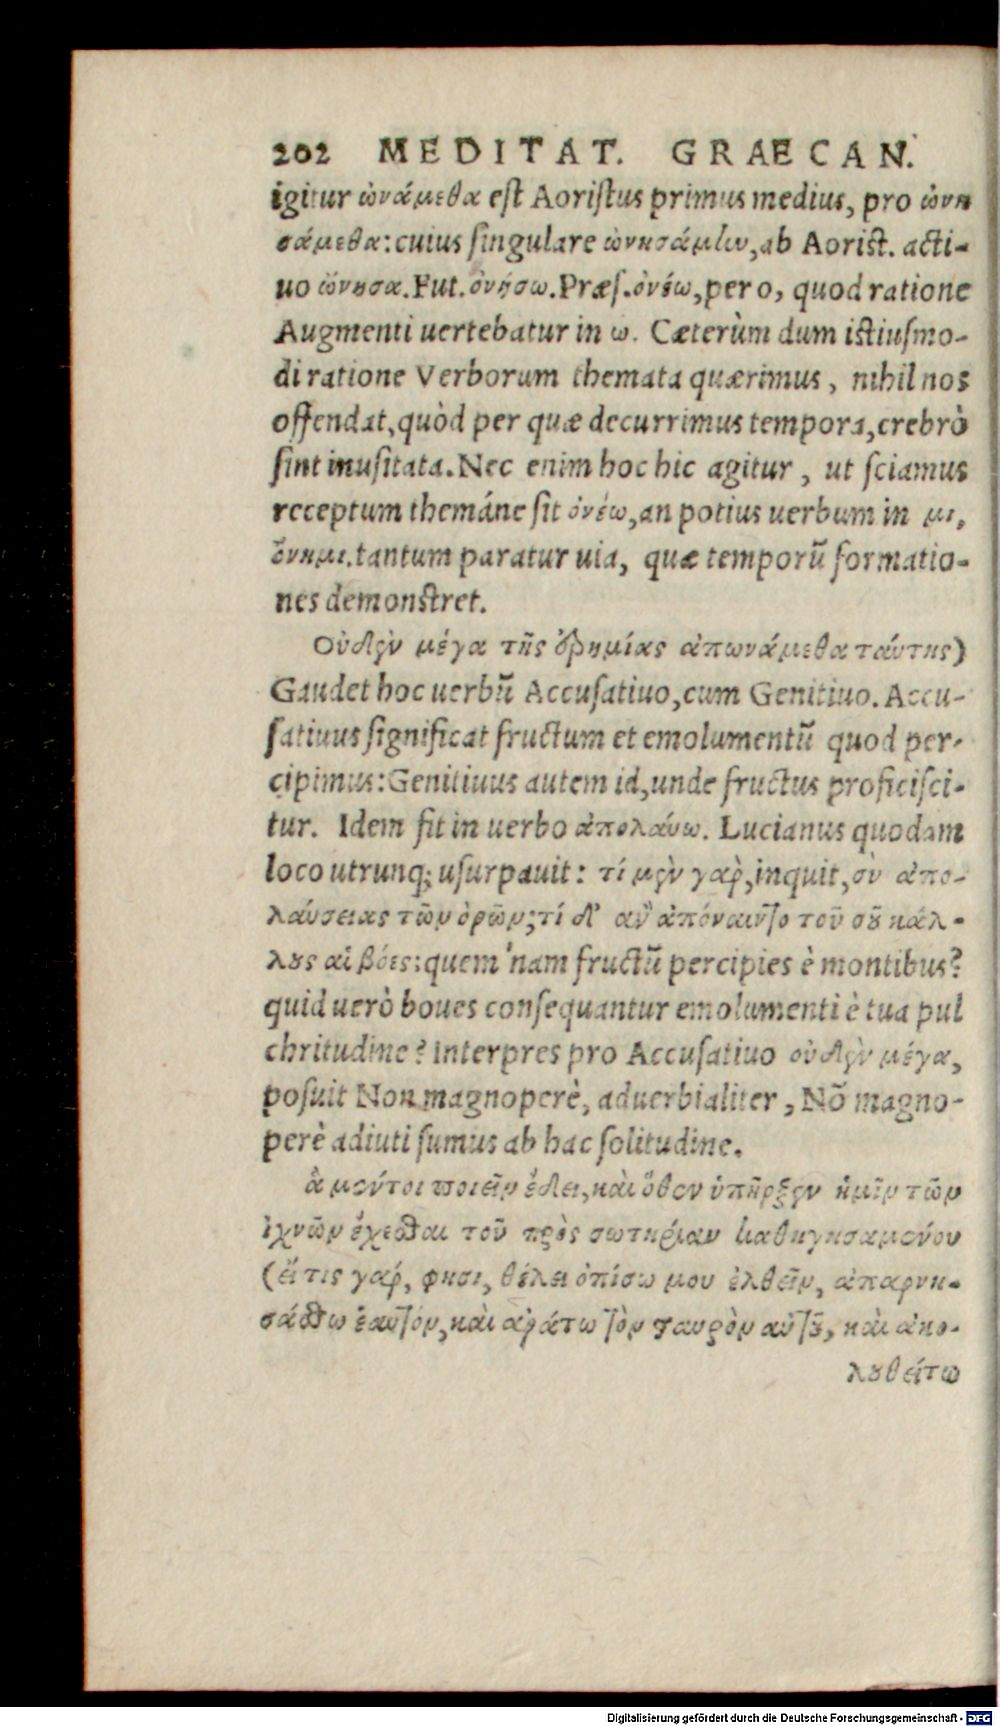 202 MEDITAT. GRAECAN.
igitur ὠνάμεθα est Aoristus primus medius, pro ὠνη
σάμεθα: cuius singulare ὠνησάμην, ab Aorist. acti-
uo ὤνησα. Fut. ὀνήσω. Præs. ὀνέω, per o, quod ratione
Augmenti uertebatur in ω. Cæterùm dum istiusmo-
di ratione Verborum themata quærimus, nihil nos
offendat, quòd per quæ decurrimus tempora, crebrò
sint inusitata. Nec enim hoc hic agitur, ut sciamus
receptum themáne sit ὀνέω, an potius uerbum in μι,
ὄνημι. tantum paratur uia, quæ temporũ formatio-
nes demonstret.
Οὐδὲν μέγα τῆς ἐρημίας ἀπωνάμεθα ταύτης)
Gaudet hoc uerbũ Accusatiuo, cum Genitiuo. Accu-
satiuus significat fructum et emolumentũ quod per-
cipimus: Genitiuus autem id, unde fructus proficisci-
tur. Idem fit in uerbo ἀπολαύω. Lucianus quodam
loco utrunq; usurpauit: τί μὲν γὰρ, inquit, σὺ ἀπο-
λαύσειας τῶν ὀρῶν; τί δ' ἂν ἀπόναιντο τοῦ σοῦ κάλ-
λους αἱ βόες: quem nam fructũ percipies è montibus?
quid uerò boues consequantur emolumenti è tua pul
chritudine? Interpres pro Accusatiuo οὐδὲν μέγα,
posuit Non magnoperè, aduerbialiter, Nõ magno-
perè adiuti sumus ab hac solitudine.
ἃ μέντοι ποιεῖν ἔδει, καὶ ὅθεν ὑπῆρξεν ἡμῖν τῶν
ἰχνῶν ἔχεσθαι τοῦ πρὸς σωτηρίαν καθηγησαμένου
(εἴ τις γάρ, φησι, θέλει ὀπίσω μου ἐλθεῖν, ἀπαρνη-
σάσθω ἑαυτόν, καὶ ἀράτω τὸν σταυρὸν αὐτοῦ, καὶ ἀκο-
λουθείτω
Digitalisierung gefördert durch die Deutsche Forschungsgemeinschaft - DFG